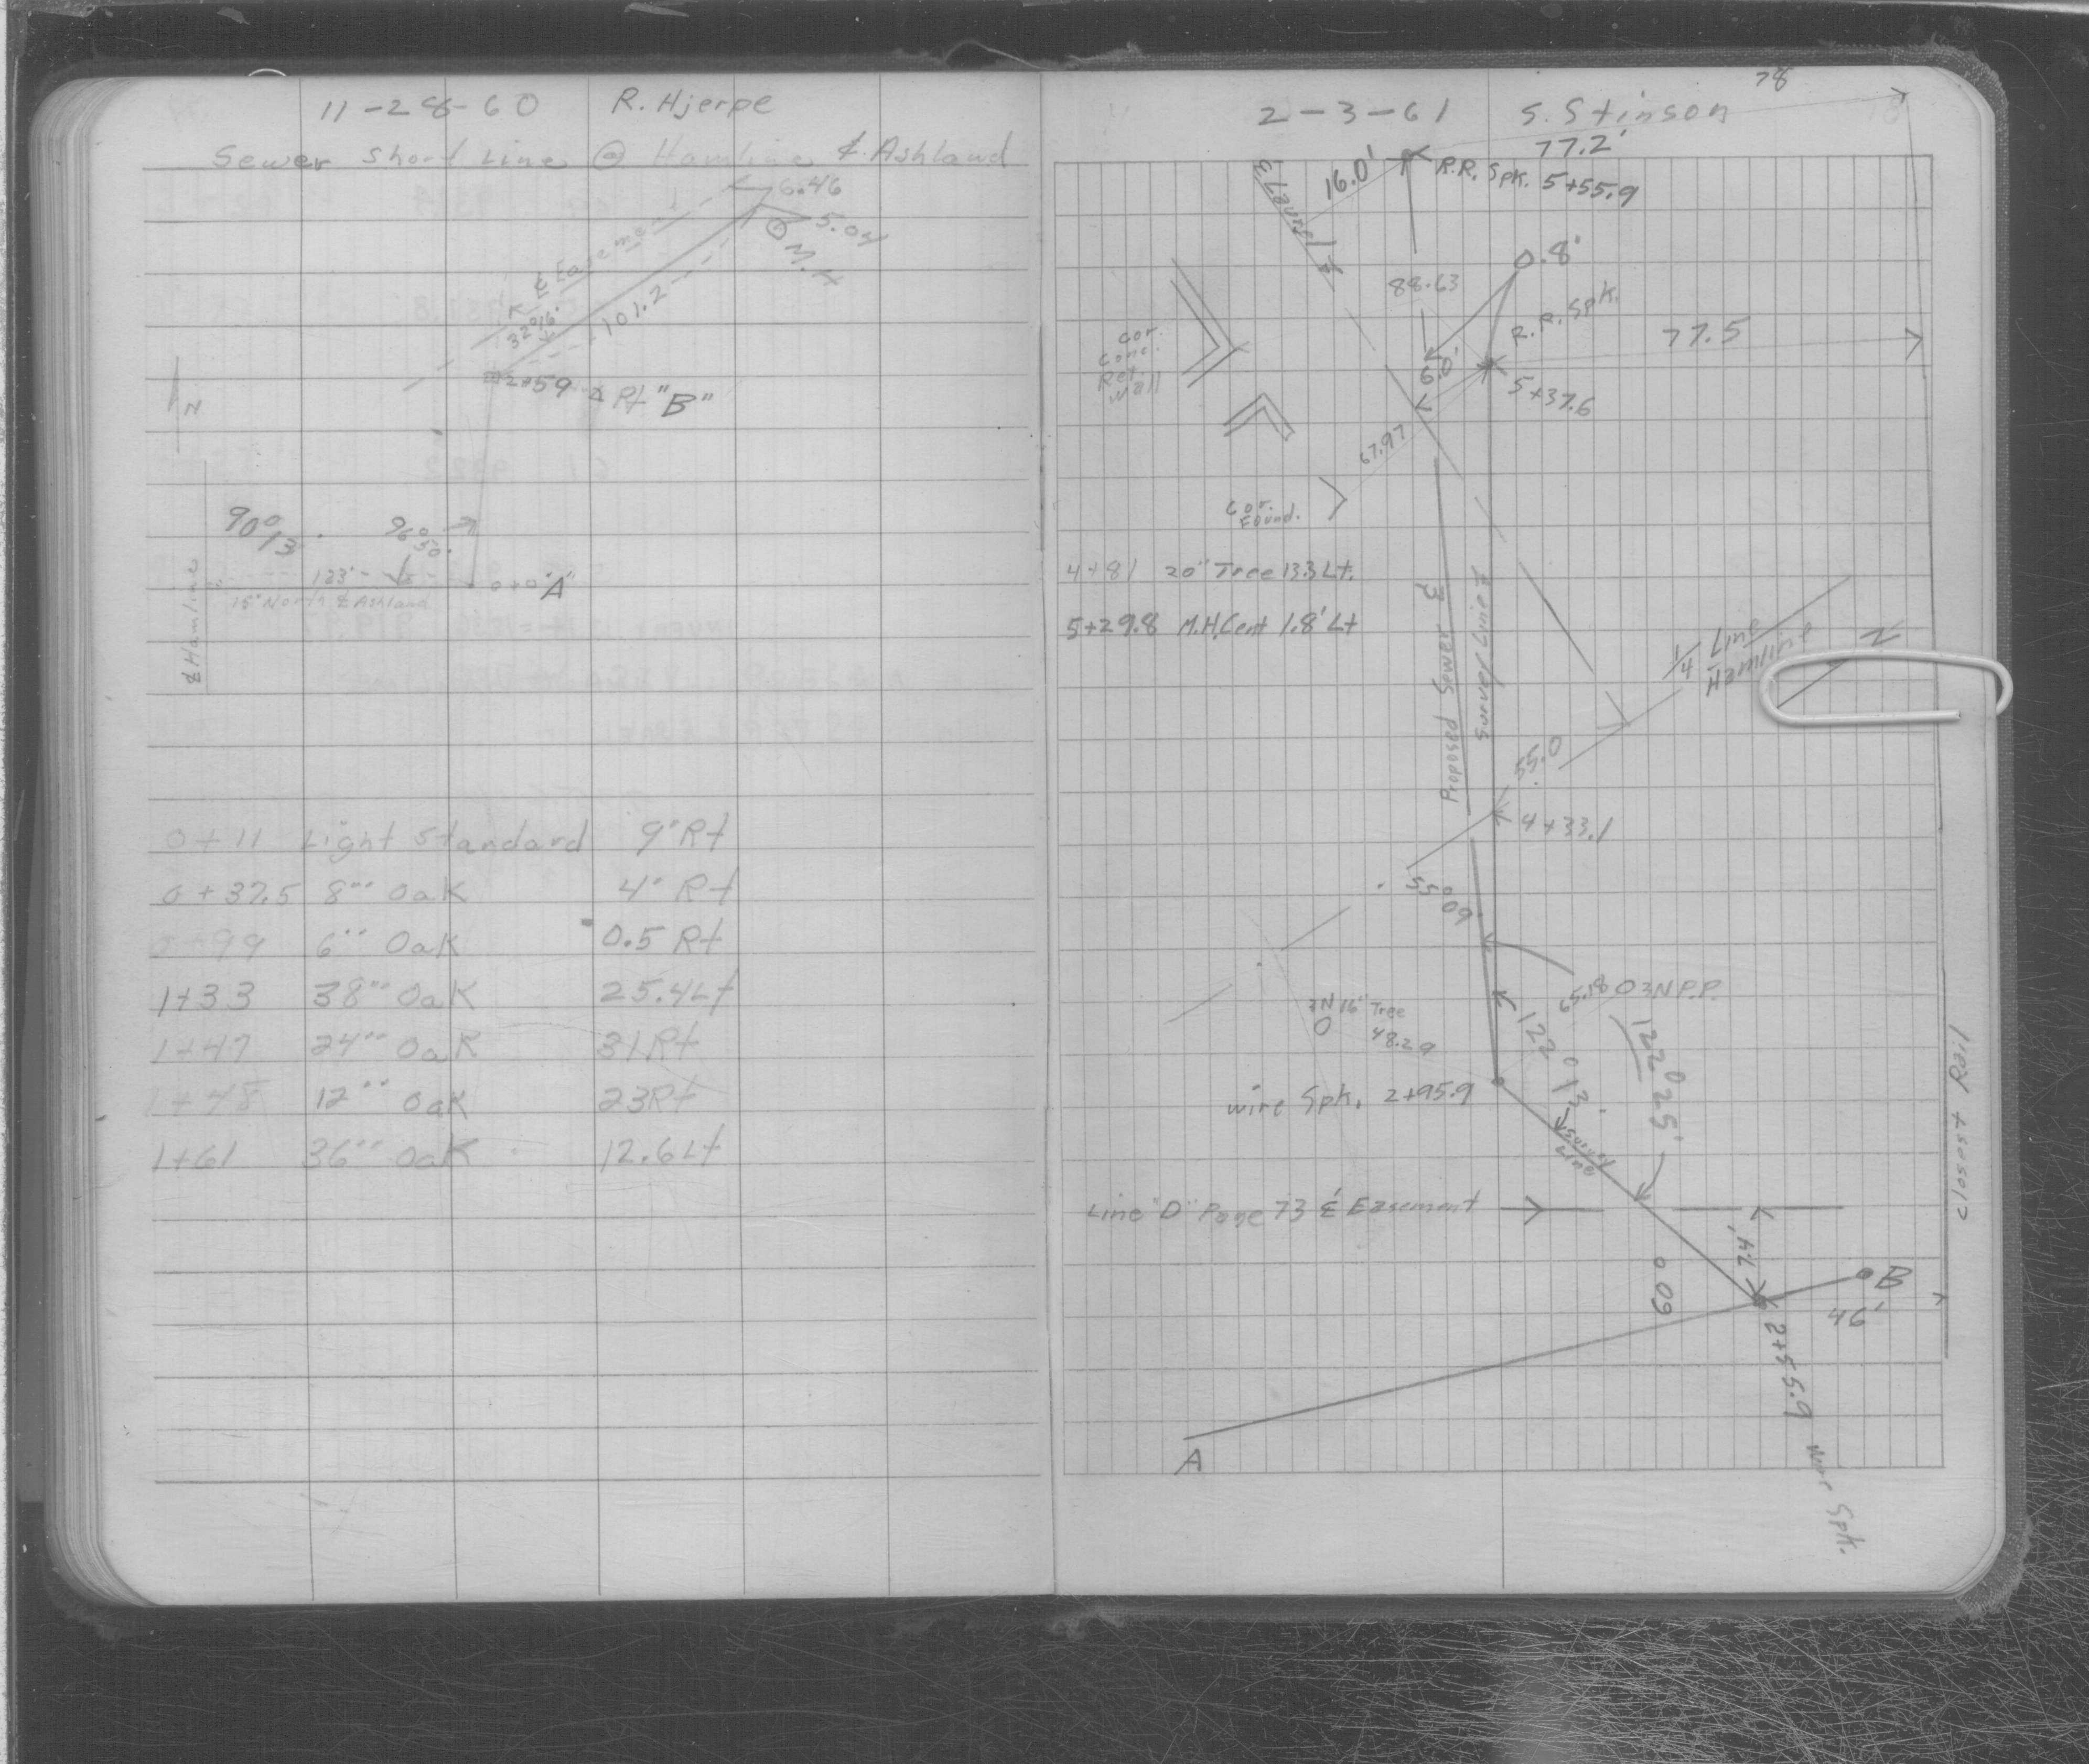 11-28-60 R. Hjerpe
Sewer Short Line @ Hamline & Ashland
6.46
5.04
M.H.
℄ Easement
32°16'
101.2
2+59 Pt "B"
N
90°13'
96°50'
123'
0+0 "A"
15' North ℄ Ashland
℄ Hamline
0+11 Light Standard 9' Rt
0+37.5 8" Oak 4' Rt
0+99 6" Oak 0.5 Rt
1+33 38" Oak 25.4 Lt
1+47 24" Oak 31 Rt
1+48 12" Oak 23 Rt
1+61 36" Oak 12.6 Lt
2-3-61 S. Stinson
78
77.2'
16.0'
R.R. Spk. 5+55.9
℄ Laurel
0.8'
88.63
R.R. Spk.
77.5
Cor.
Conc.
Ret.
Wall
6.0'
5+37.6
67.97
Cor.
Found.
4+81 20" Tree 13.3 Lt.
5+29.8 M.H. Cent 1.8' Lt
Proposed Sewer
Survey Line
1/4 Line
Hamline
N
55.0
4+33.1
55°09'
65.18 3N P.P.
3N 16" Tree
48.29
122°13'
122°25'
wire Spk. 2+95.9
Survey
Line
Line "D" Page 73 ℄ Easement
44'
60°
B
46'
2+55.9 wire Spk.
A
Closest Rail